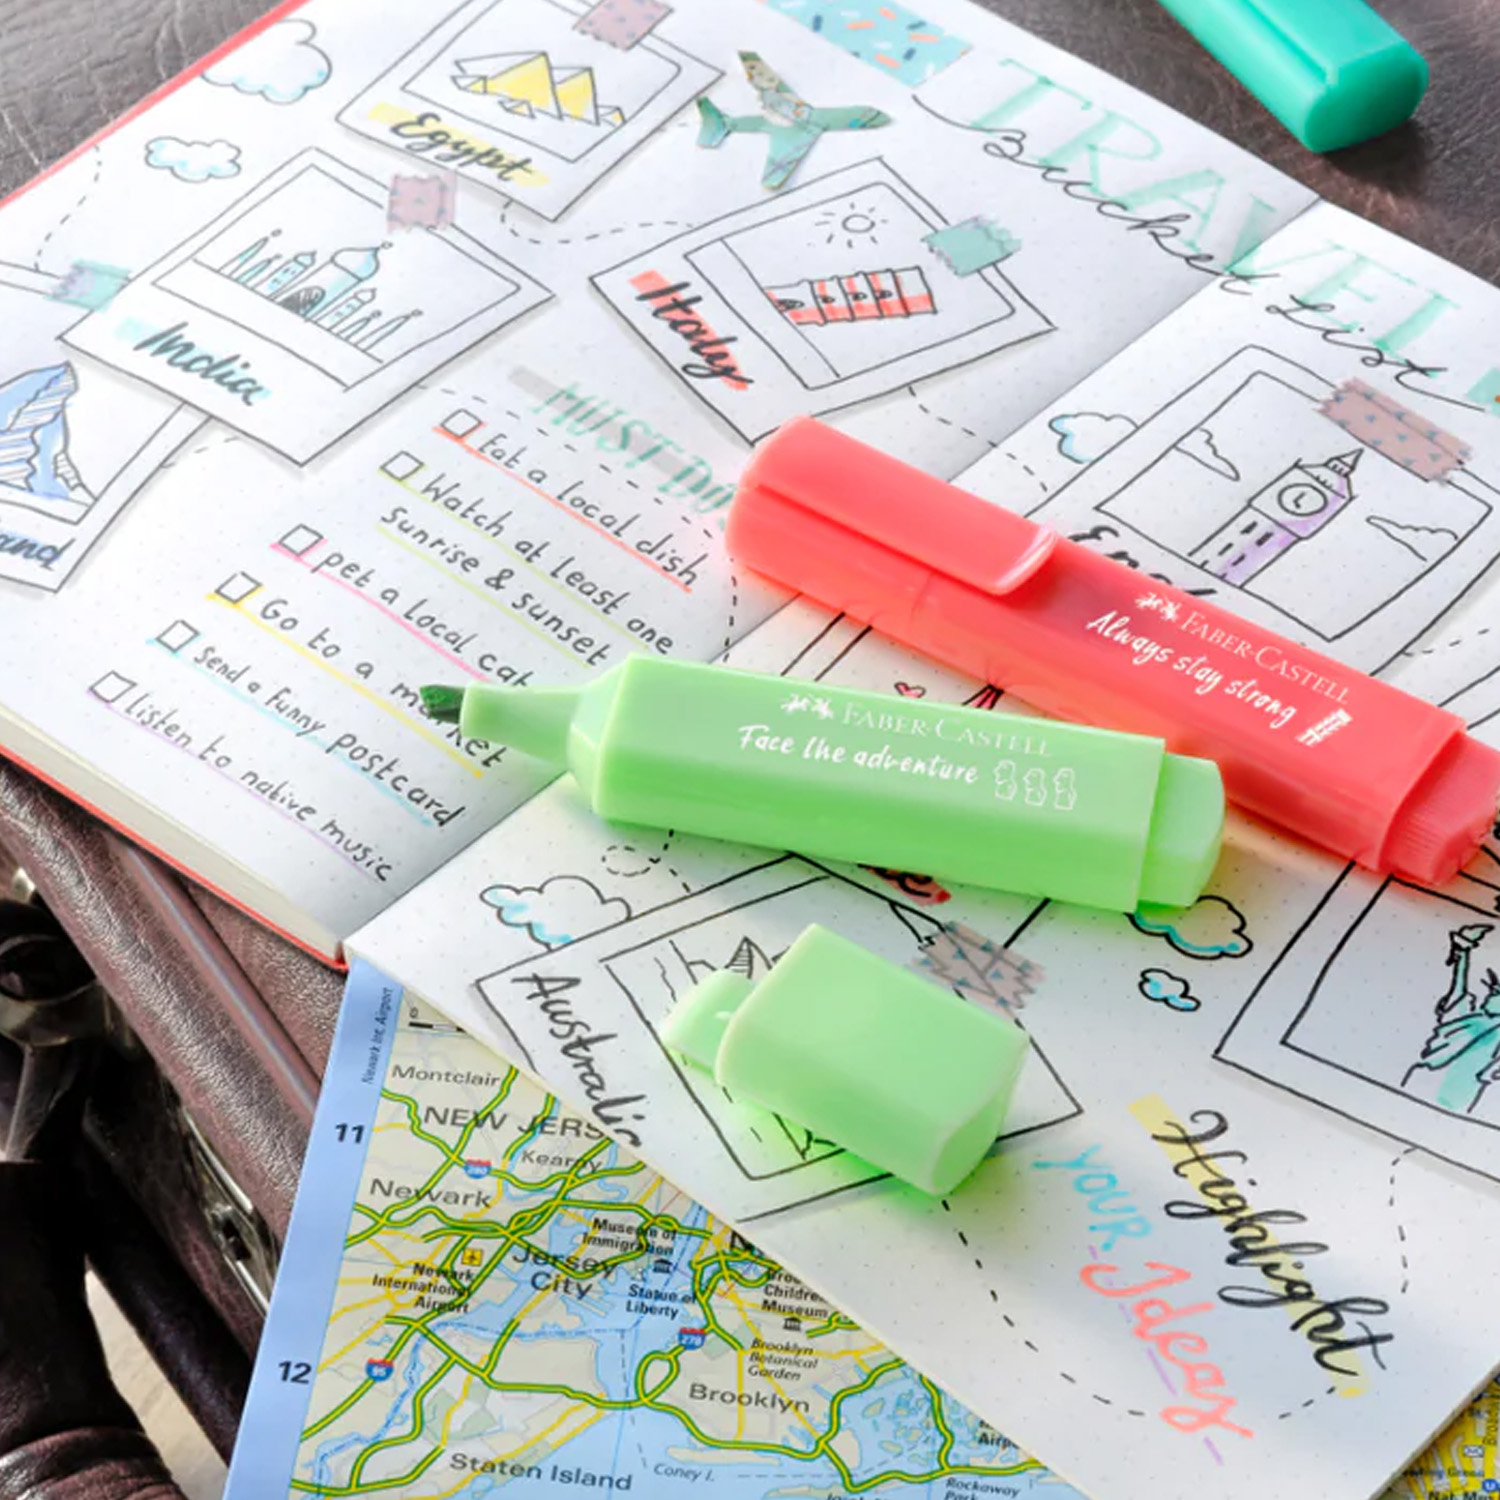 TRAVEL
Bucket List
Egypt
India
Italy
MUST DO
Eat a local dish
Watch at least one
Sunrise & sunset
pet a local cat
Go to a market
Send a funny postcard
Listen to native music
FABER-CASTELL
Always stay strong
FABER-CASTELL
Face the adventure
Australia
Highlight
YOUR
Ideas
Newark Int. Airport
0
11
12
Montclair
NEW JERS
Kearny
280
Newark
Museum of
Immigration
Jersey
City
Newark
International
Airport
Statue of
Liberty
278
Children
Museum
Brooklyn
Botanical
Garden
95
Brooklyn
Staten Island
Coney I.
Rockaway